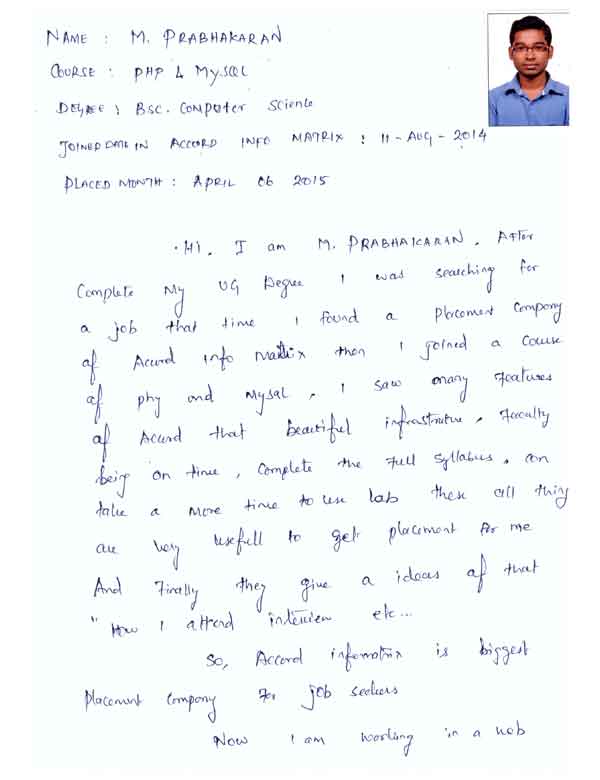 NAME : M. PRABHAKARAN
COURSE : PHP & MySQL
DEGREE : BSC. Computer Science
JOINED DATE IN ACCORD INFO MATRIX : 11 - AUG - 2014
PLACED MONTH : APRIL 06 2015
Hi. I am M. PRABHAKARAN. After
Complete My UG Degree I was searching for
a job that time I found a placement Company
of Accord Info Matrix then I joined a Course
of php and Mysql. I saw many Features
of Accord that beautiful infrastrutre, Faculty
being on time, Complete the Full Syllabus, can
take a more time to use lab these all thing
are very usefull to get placement for me
And Finally they give a ideas of that
"How I attend interview etc...
So, Accord infomatrix is biggest
Placement Company For job seekers
Now I am working in a web